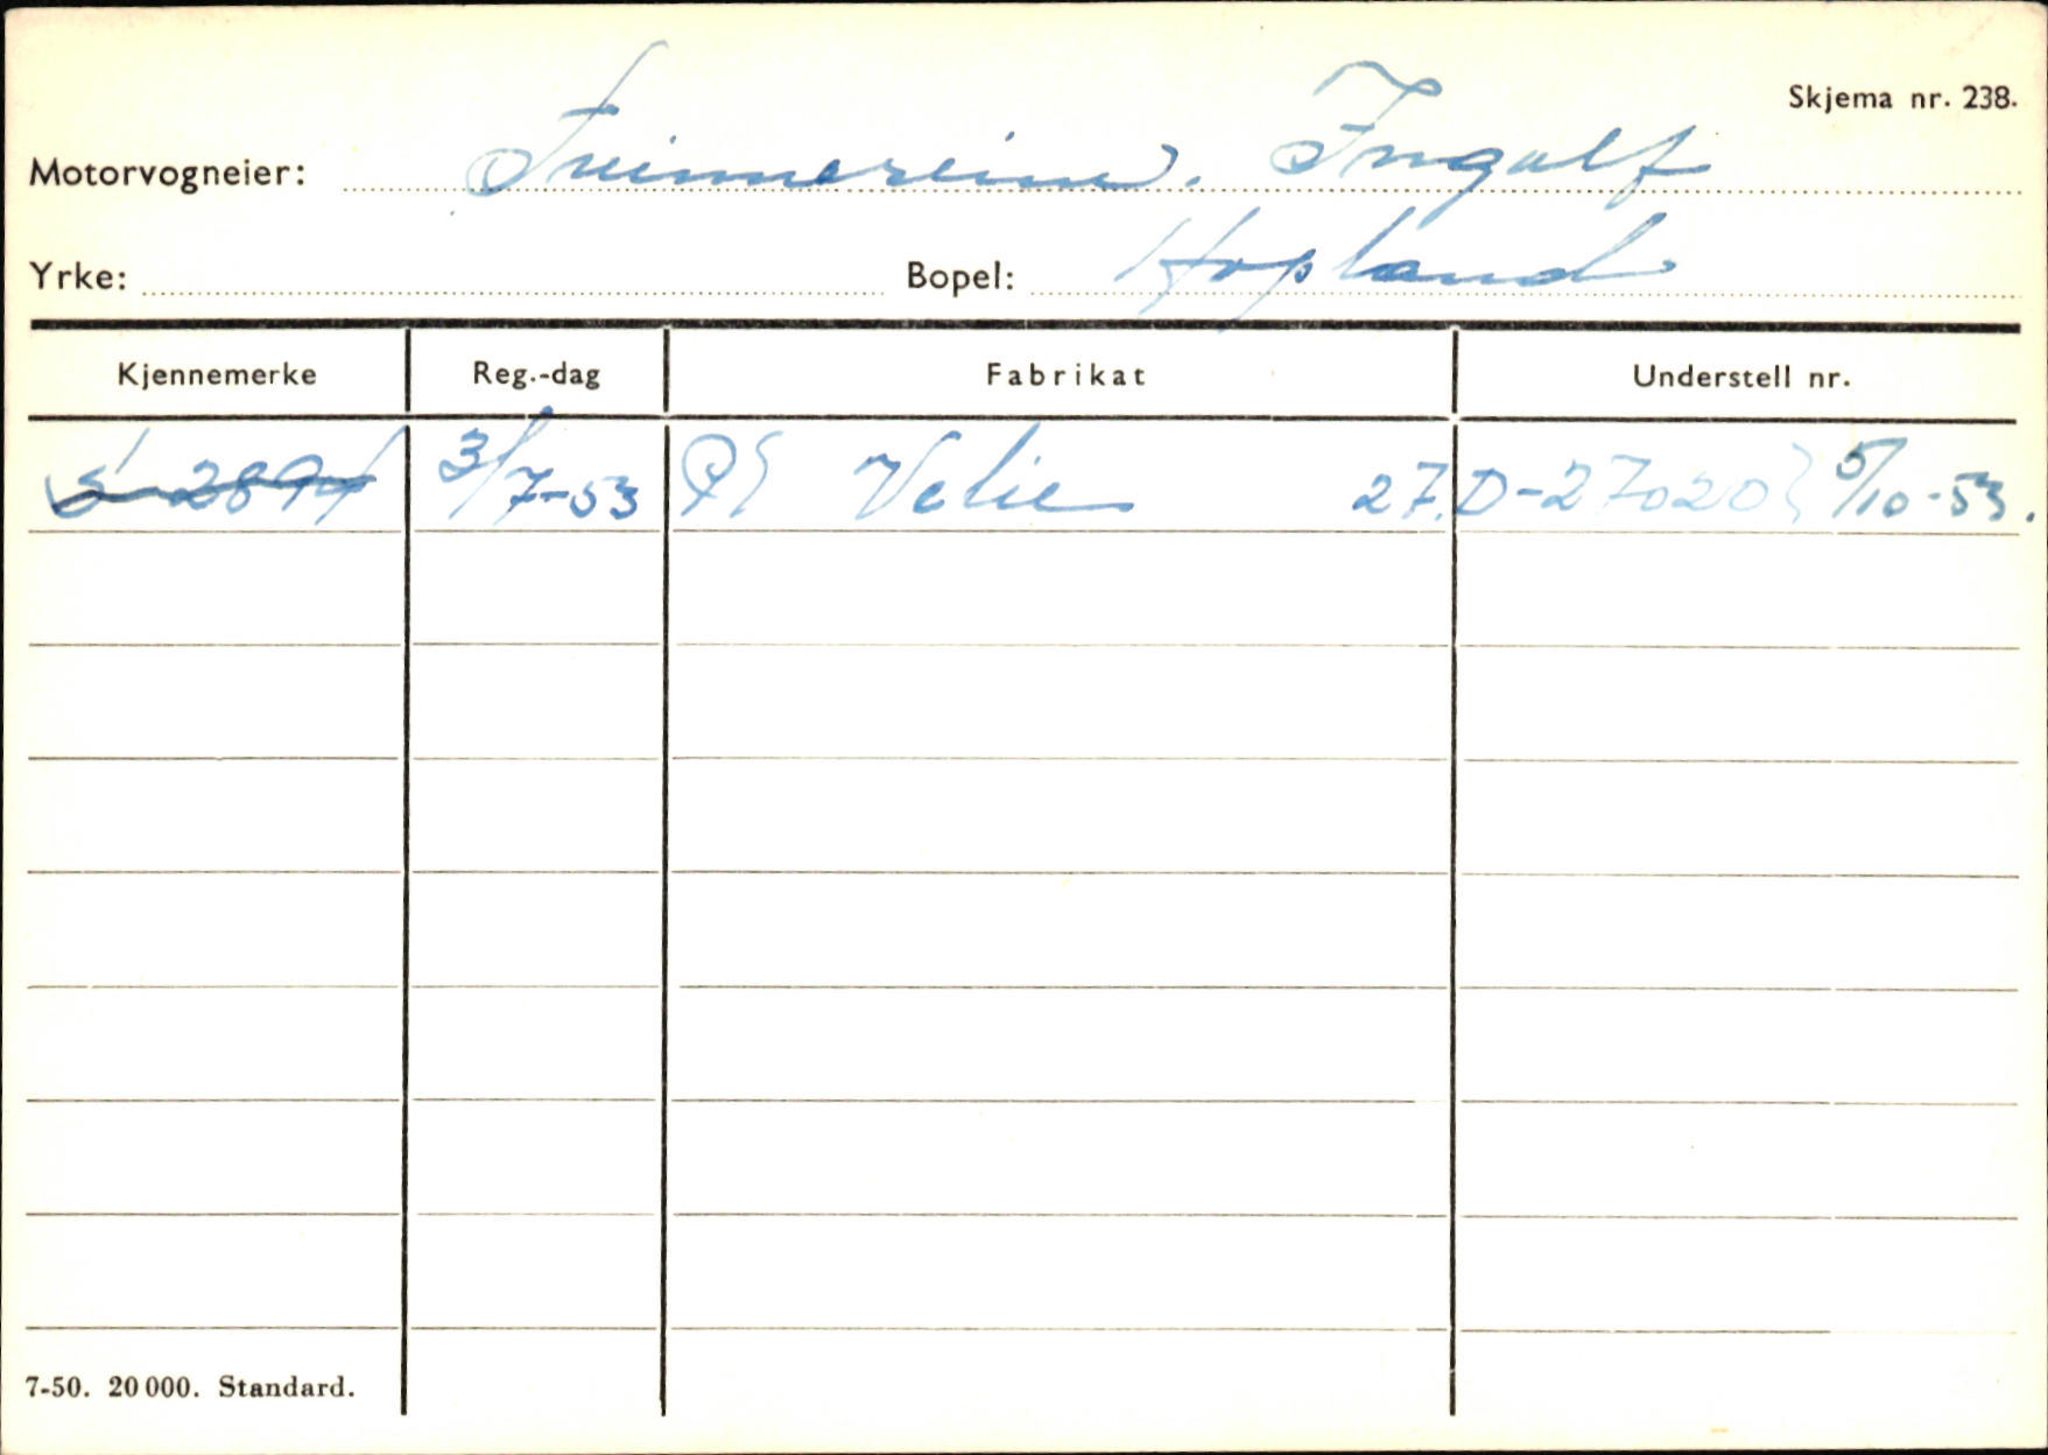 Skjema nr. 238.
Motorvogneier: Ingolf
Yrke: Bopel: Hopland
Kjennemerke Reg.-dag Fabrikat Understell nr.
S-2894 3/7-53 Velie 27. D-27020 } 5/10-53.
7-50. 20 000. Standard.